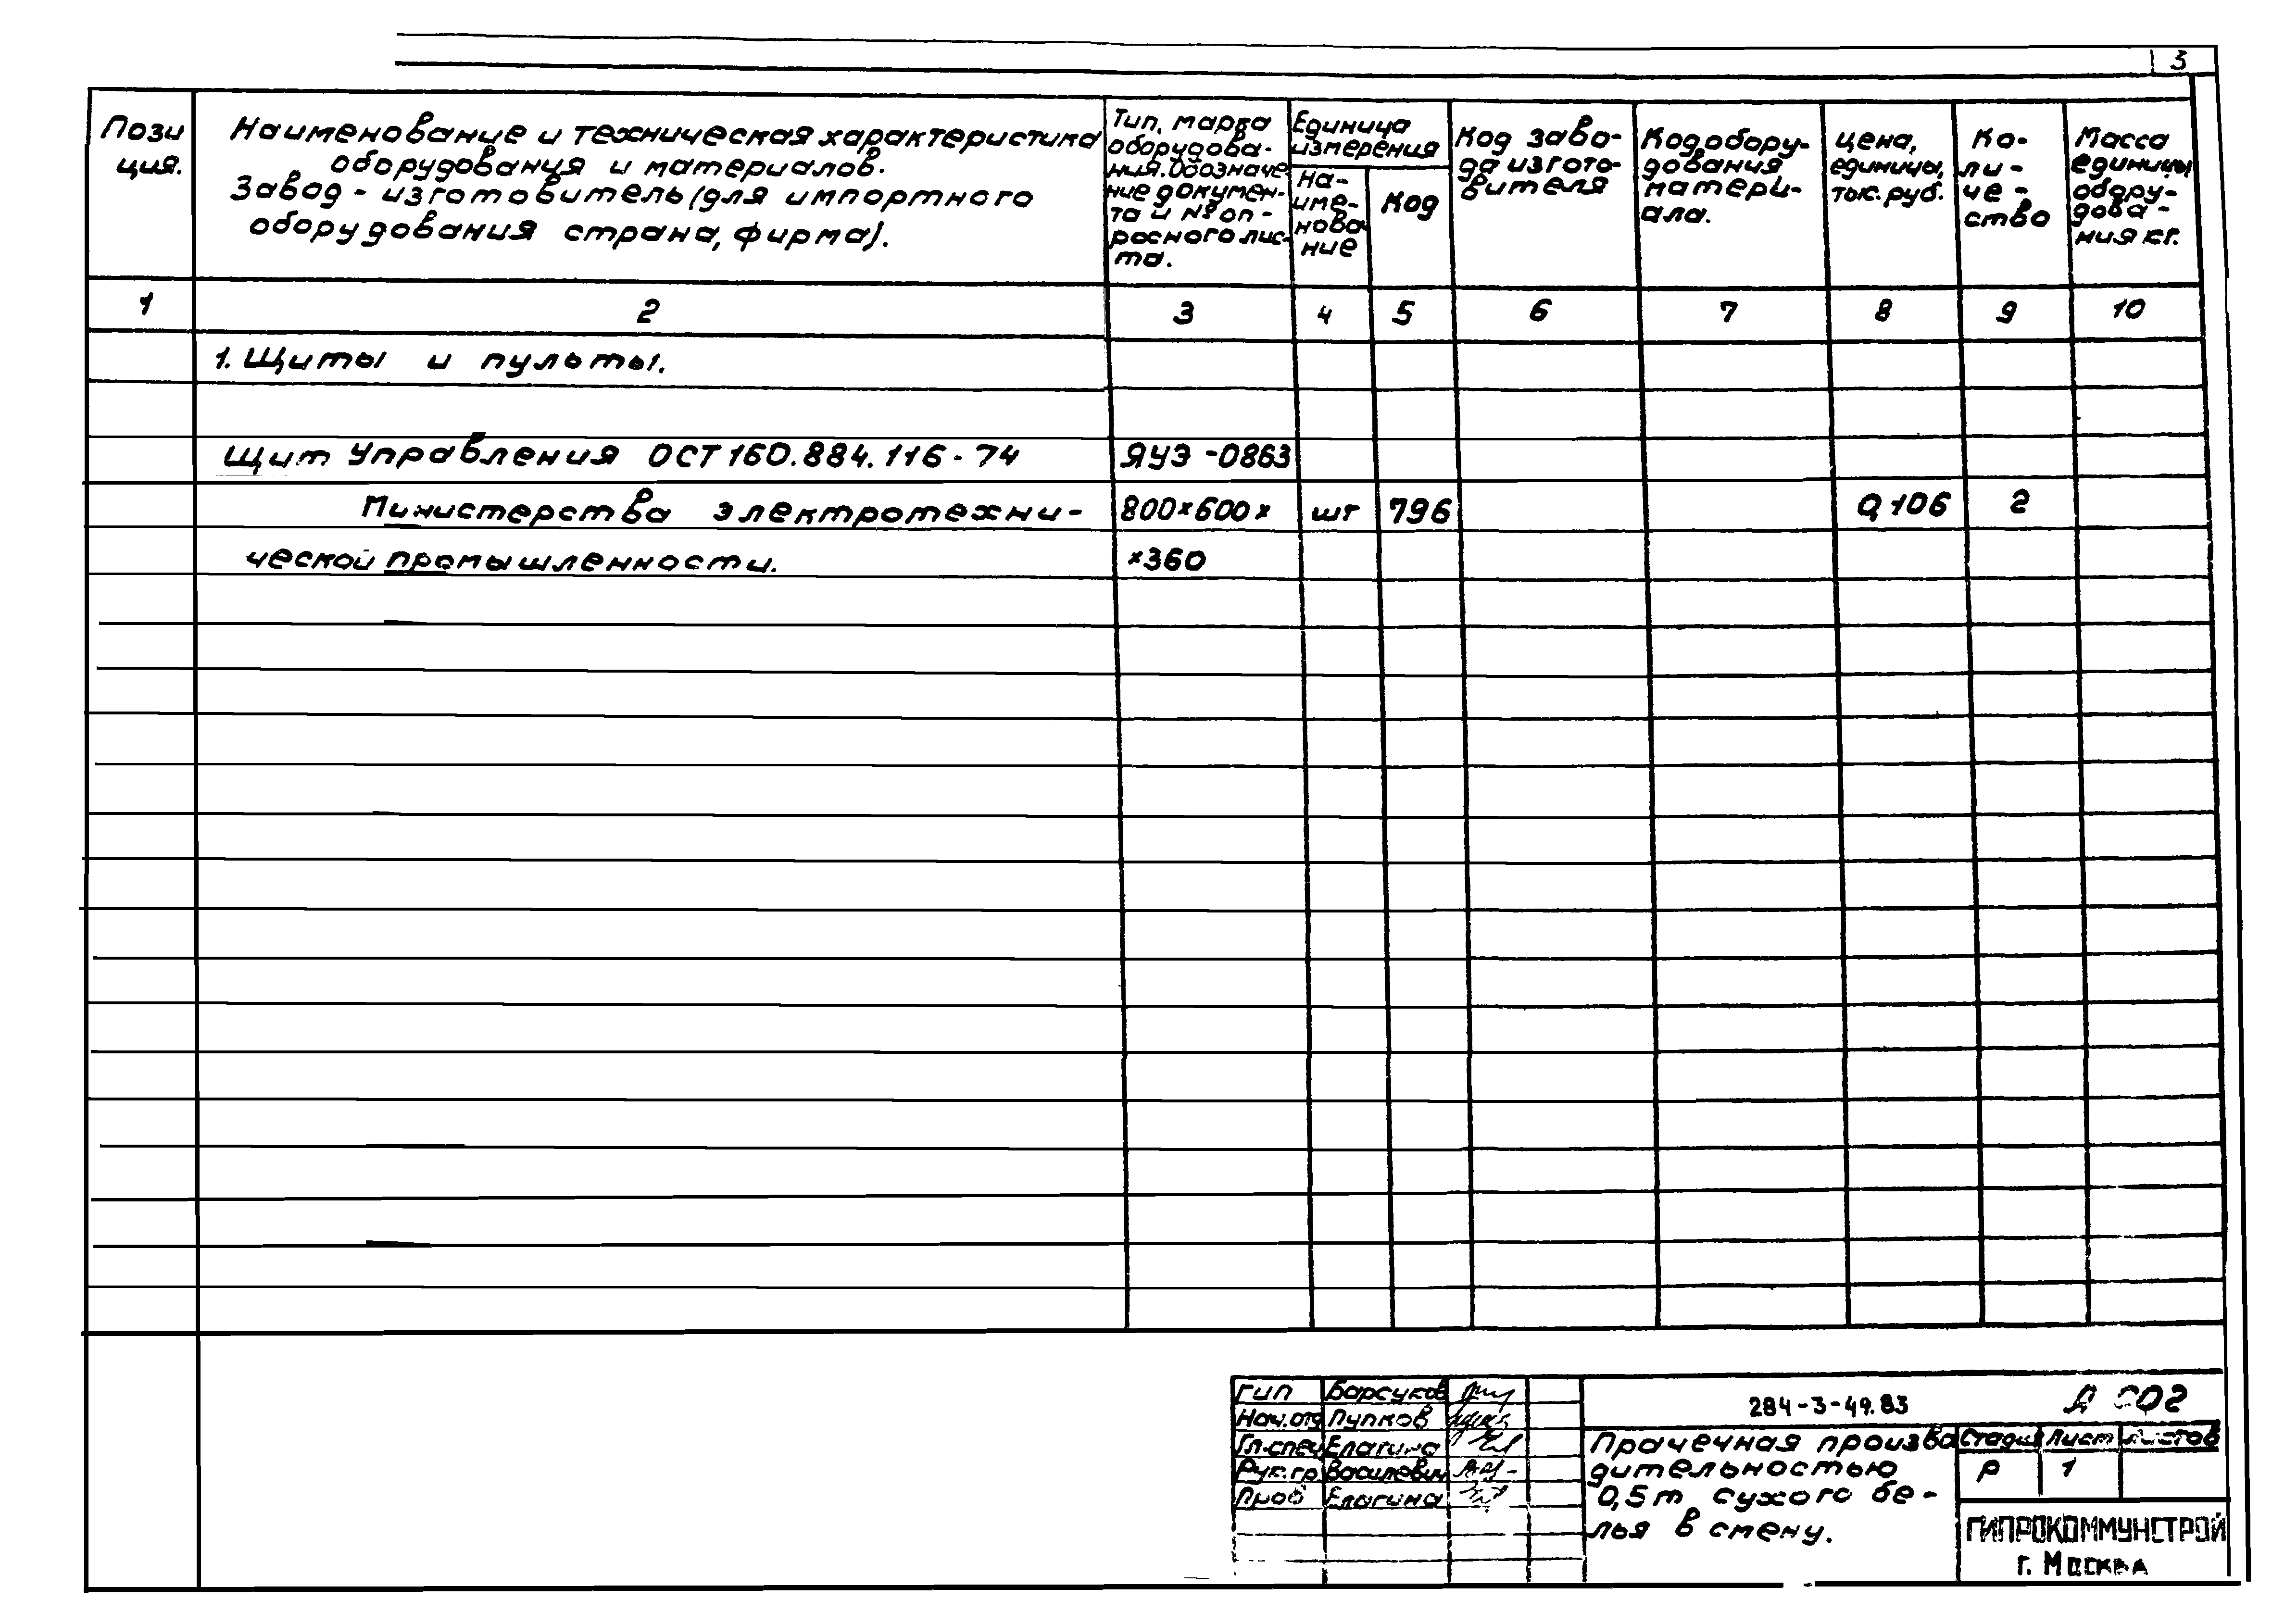 3
Пози
ция.
Наименование и техническая характеристика
оборудования и материалов.
Завод - изготовитель (для импортного
оборудования страна, фирма).
Тип, марка
оборудова-
ния. Обозначе
ние докумен-
та и № оп-
росного лис-
та.
Единица
измерения
На-
име-
нова
ние
Код
Код заво-
да изгото-
вителя
Код обору-
дования
матери-
ала.
Цена,
единицы,
тыс. руб.
Ко-
ли-
че-
ство
Масса
единицы
обору-
дова-
ния кг.
1 2 3 4 5 6 7 8 9 10
1. Щиты и пульты.
Щит Управления ОСТ160.884.116-74 ЯУЭ-0863
Министерства электротехни- 800×600× шт 796 0,106 2
ческой промышленности. ×360
ГИП Барсуков
Нач.отд Пупков
Гл.спец Елагина
Рук.гр. Василевич
Пров Елагина
284-3-49.83
Прачечная произво
дительностью
0,5т сухого бе-
лья в смену.
Стадия Лист Листов
Р 1
ГИПРОКОММУНСТРОЙ
г. Москва